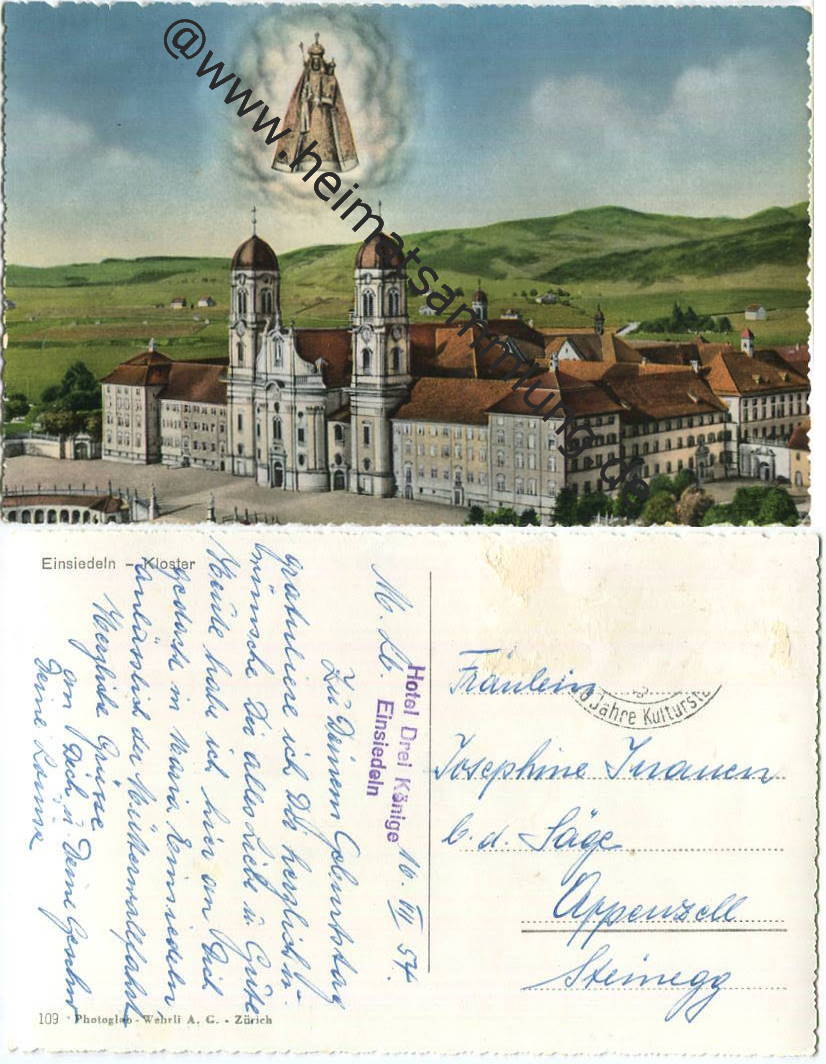 @www.heimatsammlung.de
Einsiedeln - Kloster
Hotel Drei Könige
Einsiedeln
16. VI 54.
M. Lb.
Zu Deinem Geburtstag
gratuliere ich Dir herzlich u.
wünsche Dir alles Liebe u. Gute
Heute habe ich hier an Dich
gedacht in Maria Einsiedeln
anlässlich der Müttermallfahrt
Herzliche Grüsse
an Dich u. Deine Geschw.
Deine
Jahre Kulturst
Fräulein
Josephine Inauen
b. d. Säge
Appenzell
Steinegg
109 Photoglob - Wehrli A. G. - Zürich